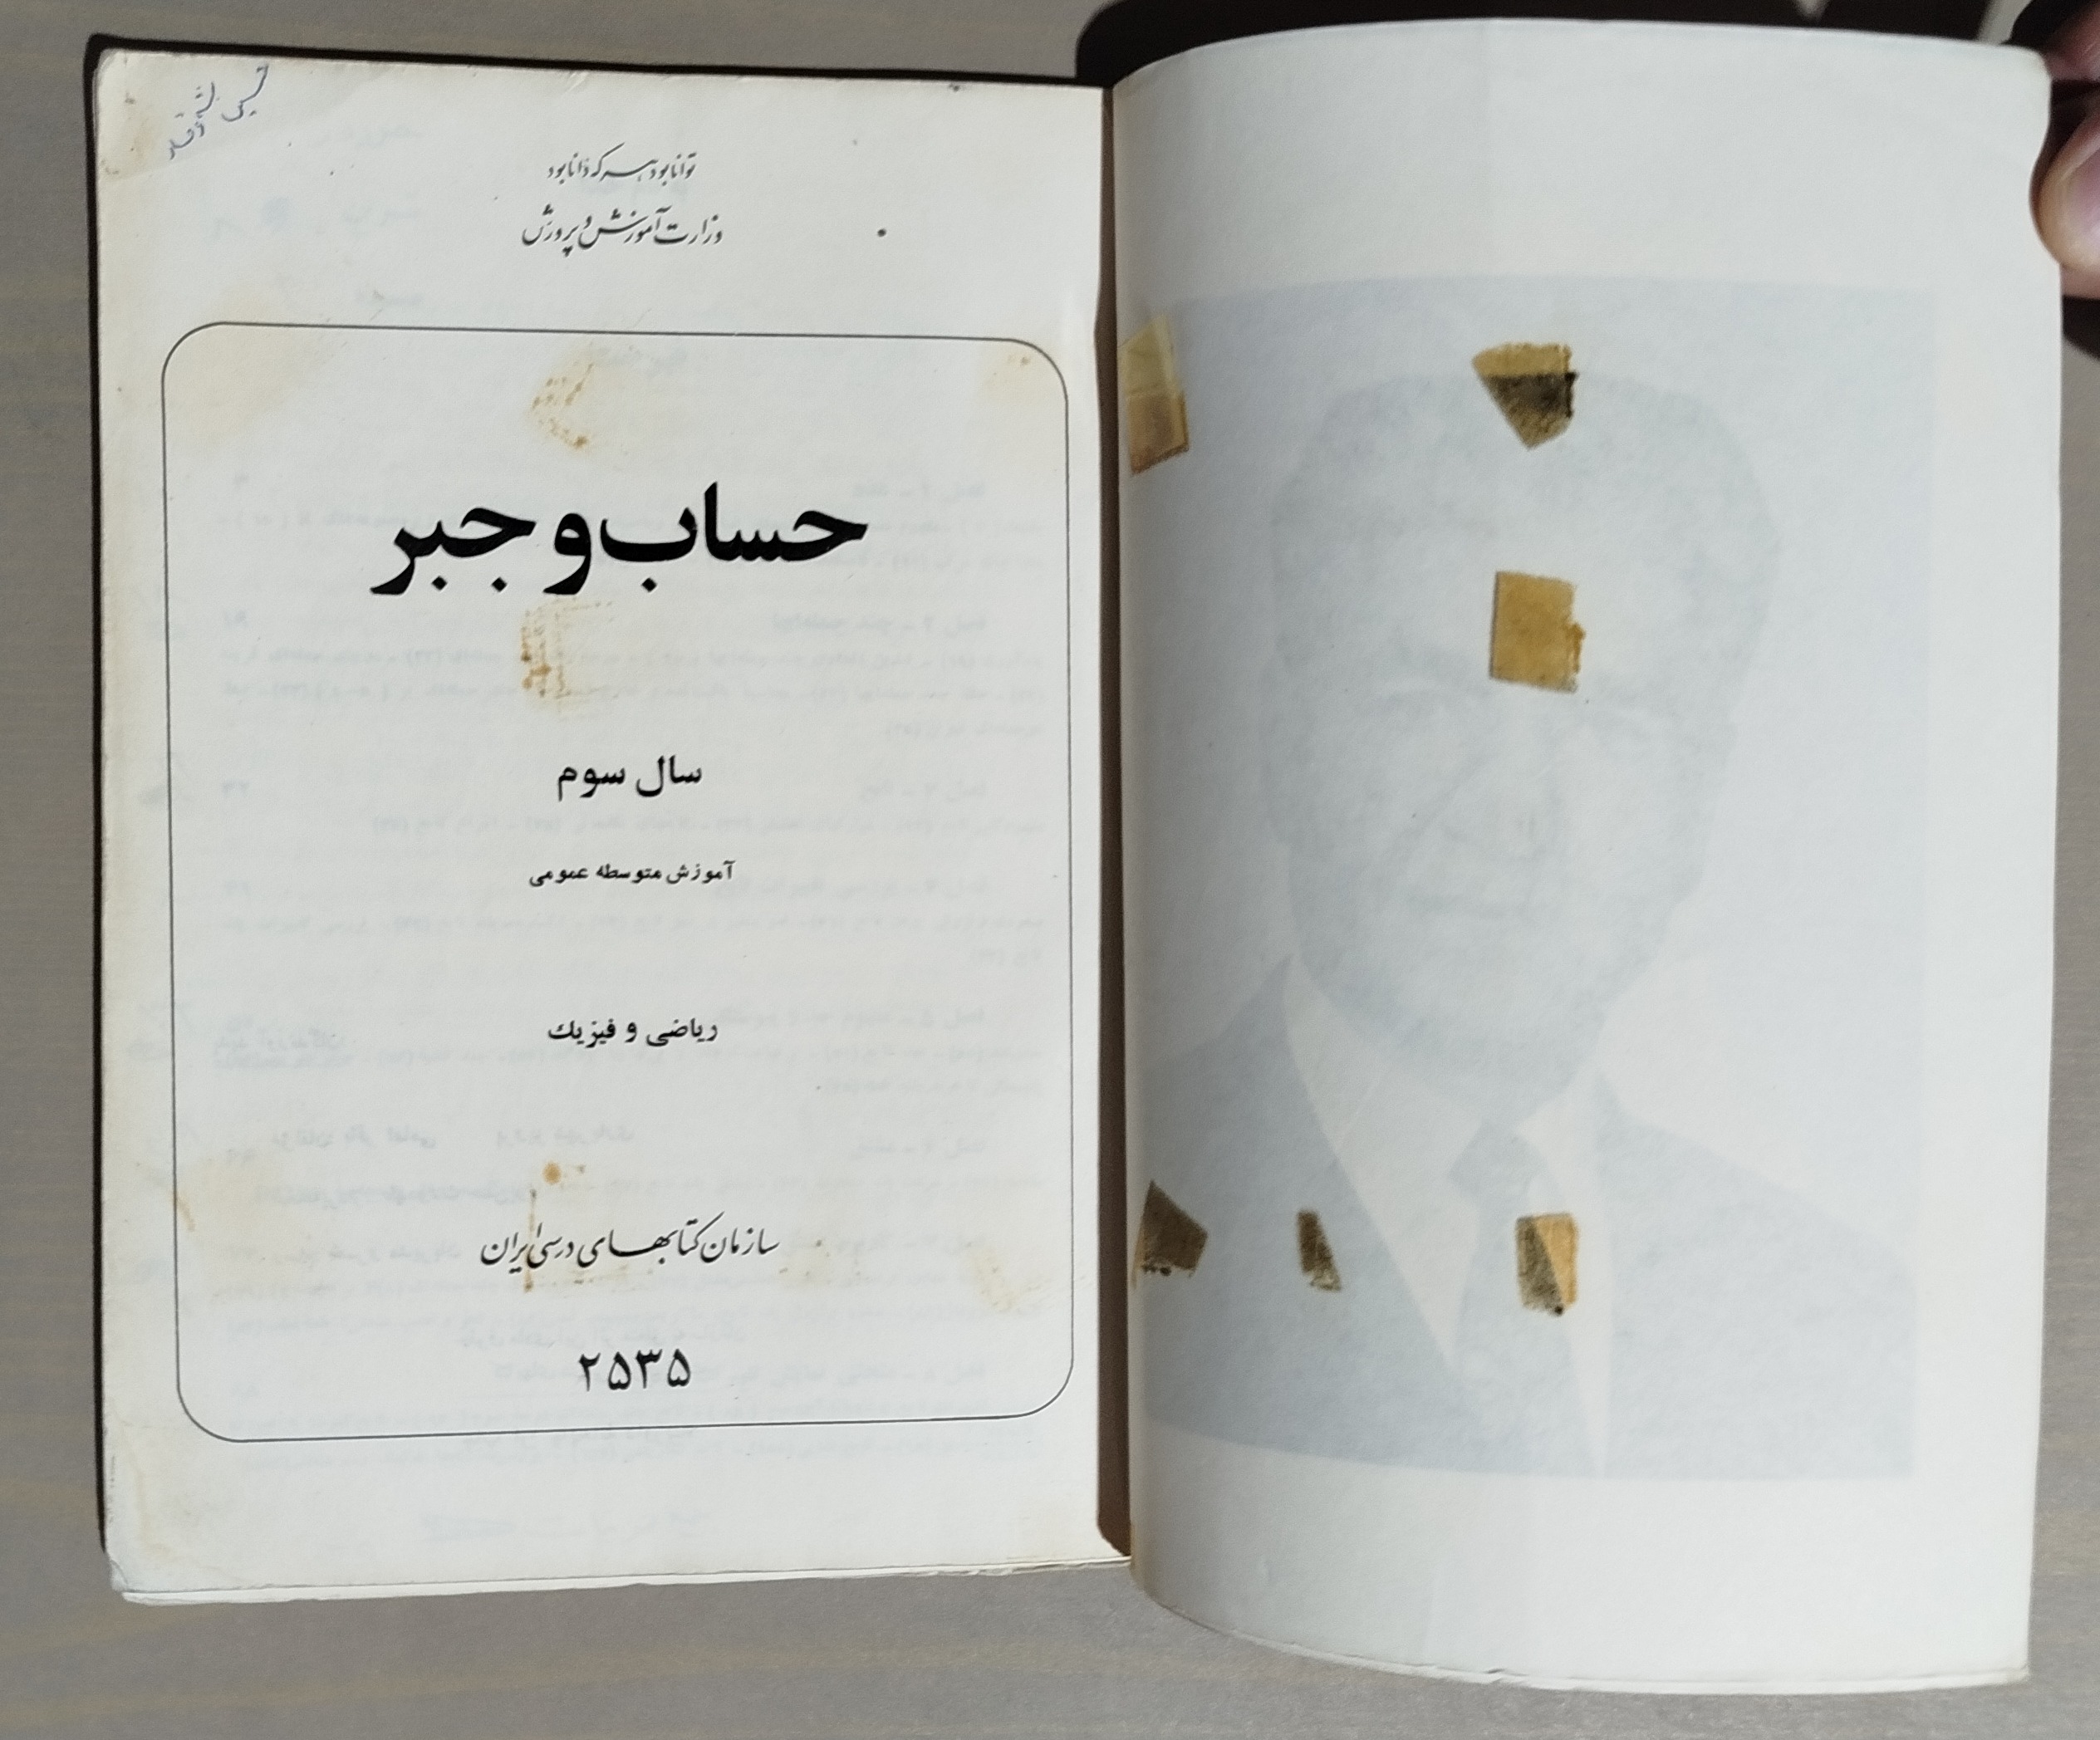 توانا بود هر که دانا بود
وزارت آموزش و پرورش
حساب و جبر
سال سوم
آموزش متوسطه عمومی
ریاضی و فیزیک
سازمان کتابهای درسی ایران
۲۵۳۵